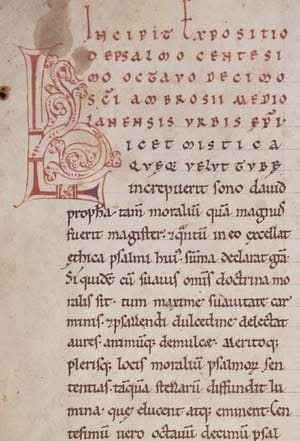 INCIPIT EXPOSITIO
DEPSALMO CENTESI
MO OCTAVO DECIMO
SCI AMBROSII MEDIO
LANENSIS URBIS EPI
LICET MISTICA
QUEQ VELUT TUBE
increpuerit sono dauid
propheta. tam moraliũ quã magnus
fuerit magister. & quãtũ in eo excellat
ethica psalmi hui summa declarat grã.
Si quidẽ cũ suauis omĩs doctrina mo
ralis sit. tum maxime suauitate car
minis. & psallendi dulcedine delectat
aures. animũq; demulcet. Meritoq;
plerisq; locis moraliũ psalmoꝝ sen
tentias. tãquã stellarũ diffundit lu
mina. que eluceant atq; eminent. Cen
tesimũ uero octauũ decimũ psal